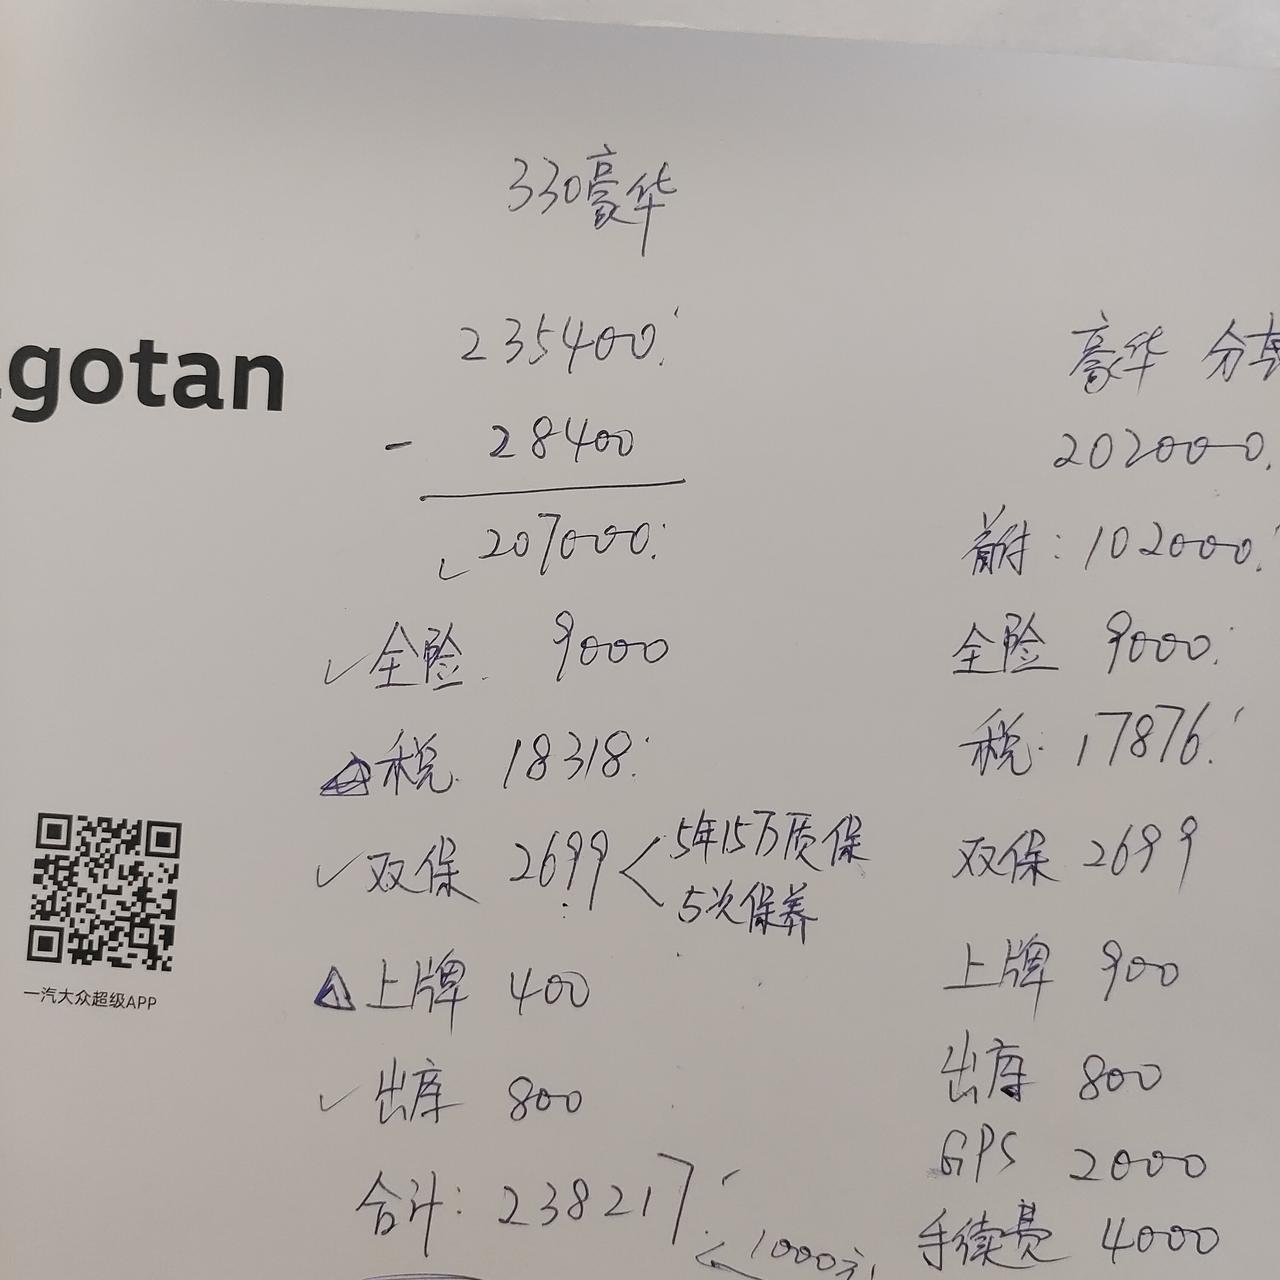 330豪华
235400
- 28400
207000
全险 9000
税 18318
双保 2699 < 5年15万质保
5次保养
上牌 400
出库 800
合计: 238217
1000元
豪华 分期
202000
首付: 102000
全险 9000
税 17876
双保 2699
上牌 900
出库 800
GPS 2000
手续费 4000
gotan
一汽大众超级APP